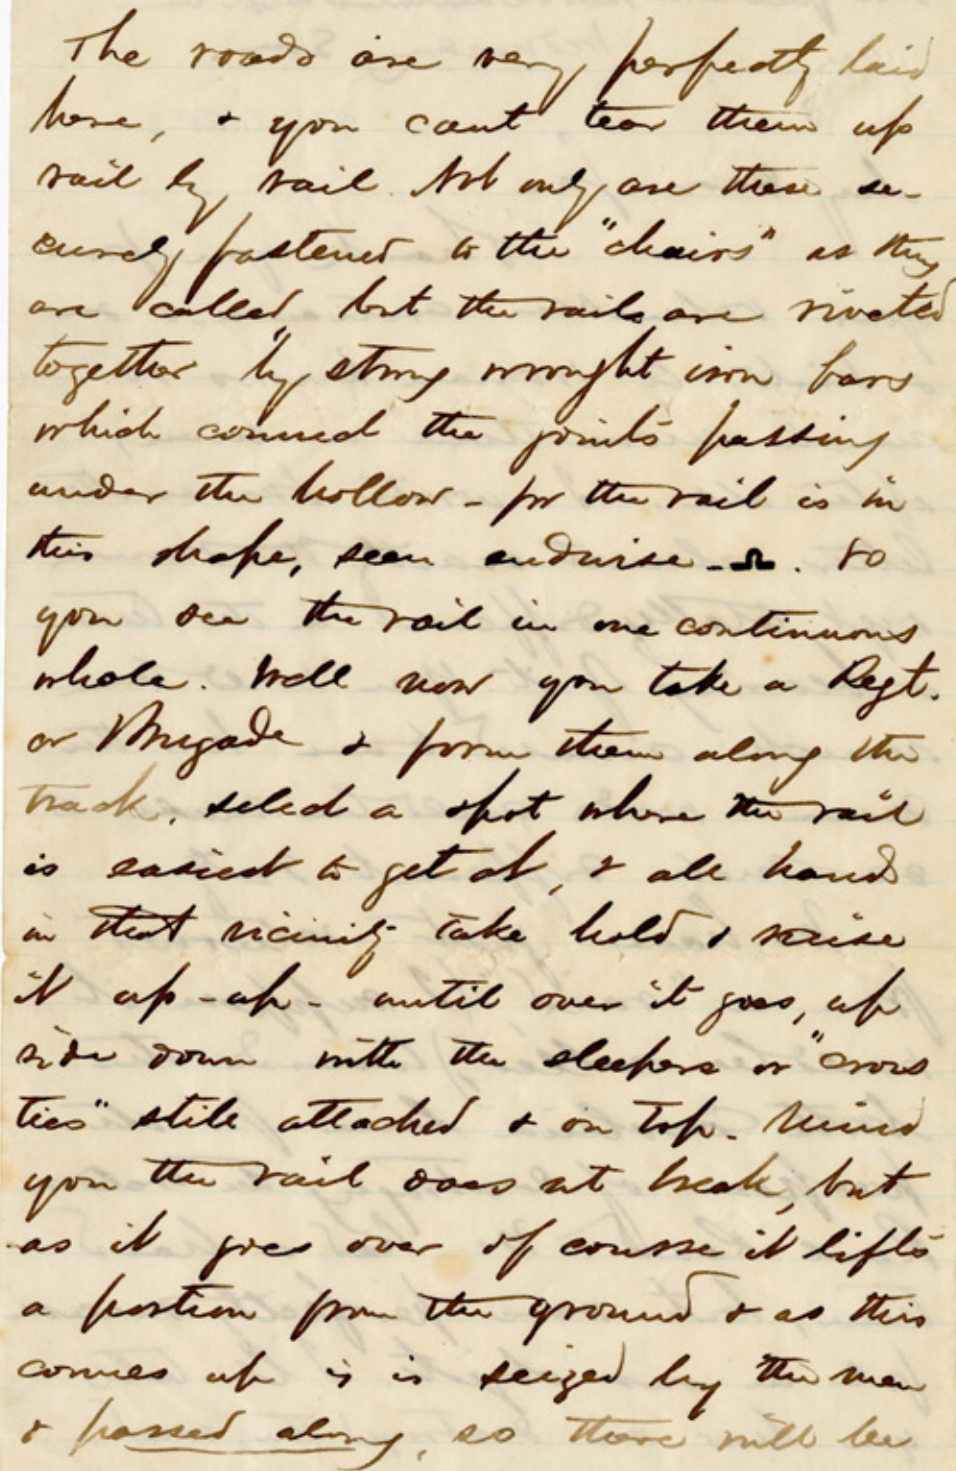 The roads are very perfectly laid
here, & you cant tear them up
rail by rail. Not only are these se-
curely fastened to the "chairs" as they
are called, but the rails are riveted
together by strong wrought iron bars
which connect the joints passing
under the hollow - for the rail is in
this shape, seen endwise - Ω. So
you see the rail in one continuous
whole. Well now you take a Regt.
or Brigade & form them along the
track, select a spot where the rail
is easiest to get at, & all hands
in that vicinity take hold & raise
it up - up - until over it goes, up
side down with the sleepers or "cross
ties" still attached & on top. Mind
you the rail does nt break, but
as it goes over of course it lifts
a portion from the ground & as this
comes up is is seized by the men
& passed along, so there will be